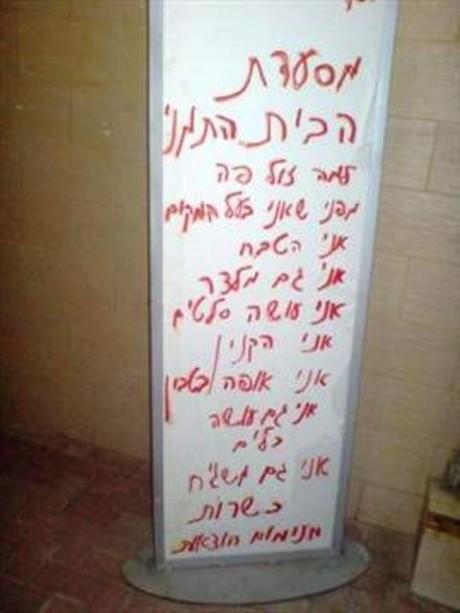 מסעדת
הבית התימני
למה זול פה
מפני שאני בעל המקום
אני הטבח
אני גם מלצר
אני עושה סלטים
אני הקניין
אני אופה בטבון
אני גם עושה
כלים
אני גם משגיח
כשרות
מינימום הוצאות